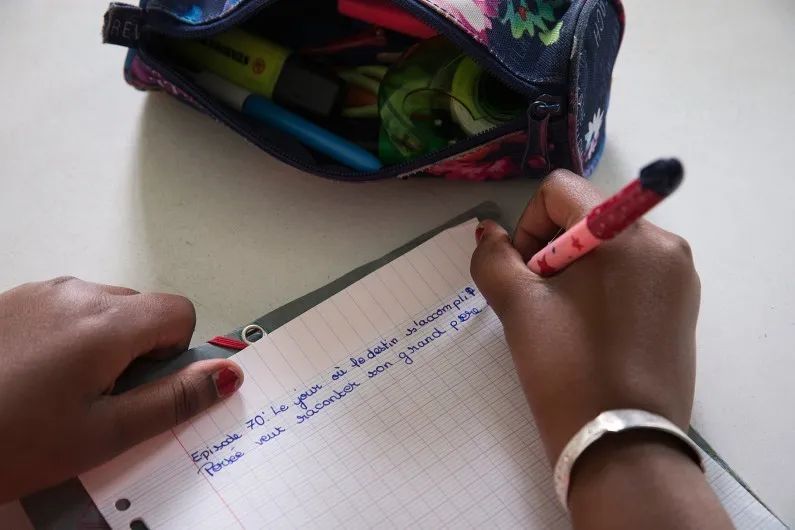 REV
Episode 70: Le jour où le destin s'accomplit
Persée veut raconter son grand père